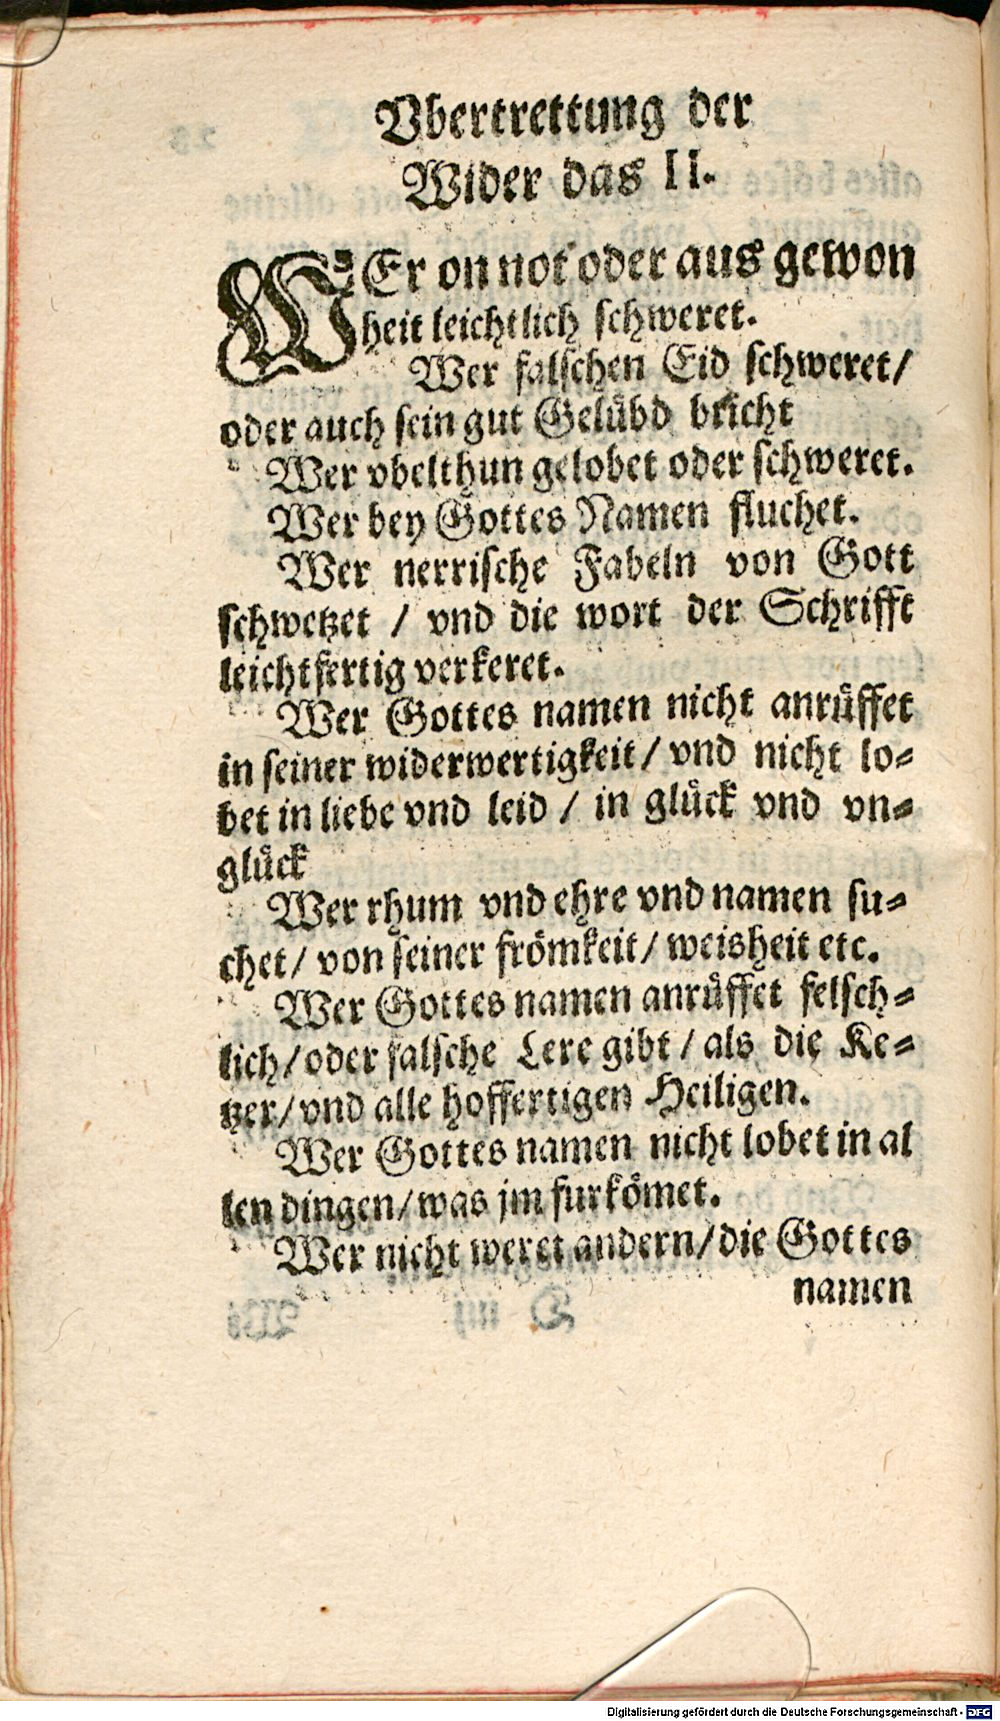 Vbertrettung der
Wider das II.
WEr on not oder aus gewon
heit leichtlich schweret.
Wer falschen Eid schweret/
oder auch sein gut Gelübd bricht
Wer vbelthun gelobet oder schweret.
Wer bey Gottes Namen fluchet.
Wer nerrische Fabeln von Gott
schwetzet / vnd die wort der Schrifft
leichtfertig verkeret.
Wer Gottes namen nicht anrüffet
in seiner widerwertigkeit/ vnd nicht lo-
bet in liebe vnd leid / in glück vnd vn-
glück
Wer rhum vnd ehre vnd namen su-
chet/ von seiner frömkeit/ weisheit etc.
Wer Gottes namen anrüffet felsch-
lich/ oder falsche Lere gibt/ als die Ke-
tzer/ vnd alle hoffertigen Heiligen.
Wer Gottes namen nicht lobet in al
len dingen/ was jm furkömet.
Wer nicht weret andern/ die Gottes
namen
Digitalisierung gefördert durch die Deutsche Forschungsgemeinschaft - DFG